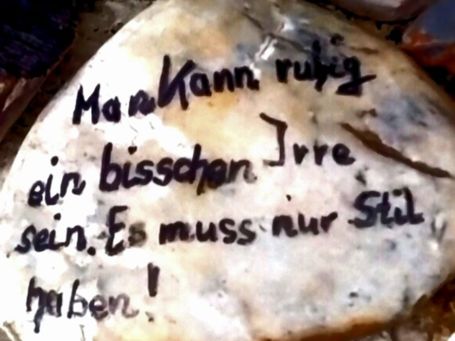 Man Kann ruhig
ein bisschen Irre
sein. Es muss nur Stil
haben!